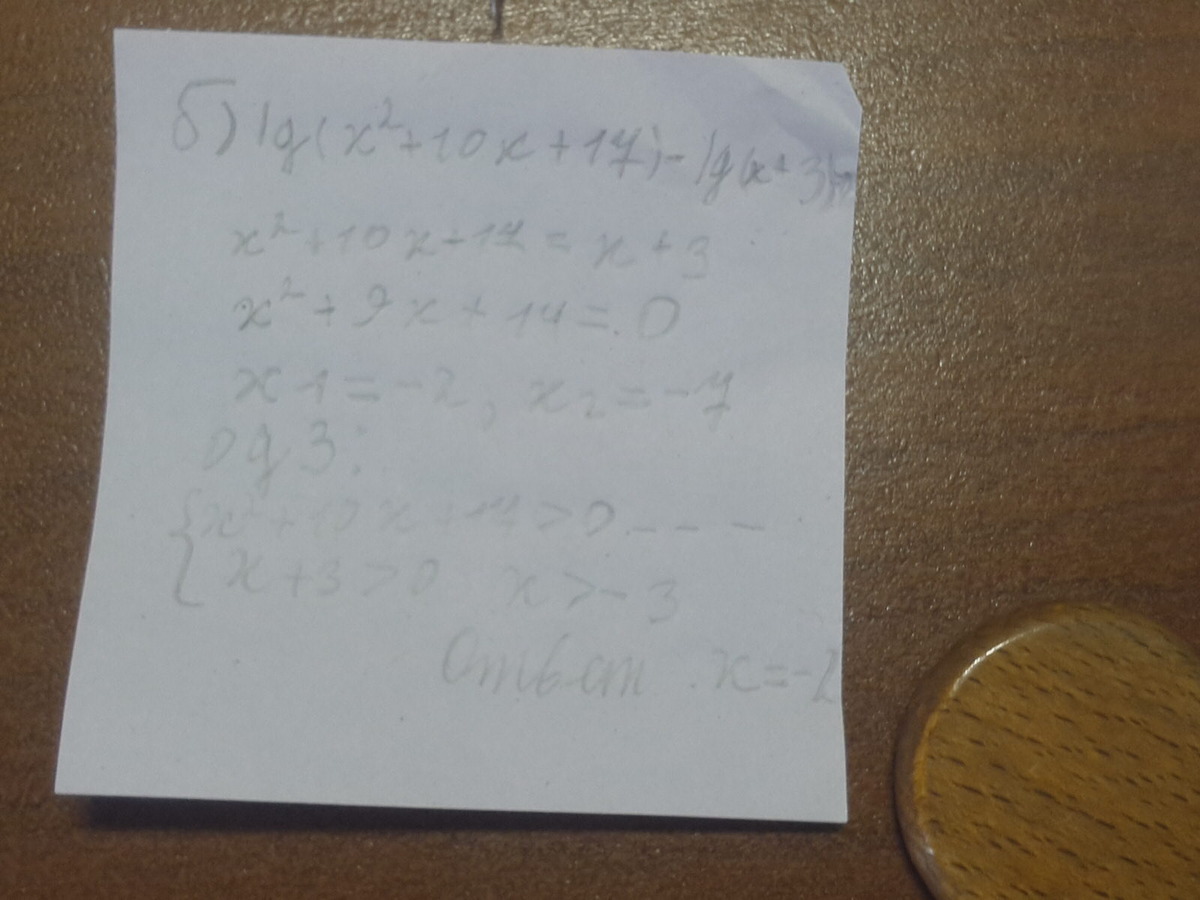 б) lg(x²+10x+17)-lg(x+3)=0
x²+10x+17=x+3
x²+9x+14=0
x1=-2, x2=-7
одз:
{x²+10x+17>0 - - -
x+3>0 x>-3
Ответ. x=-2